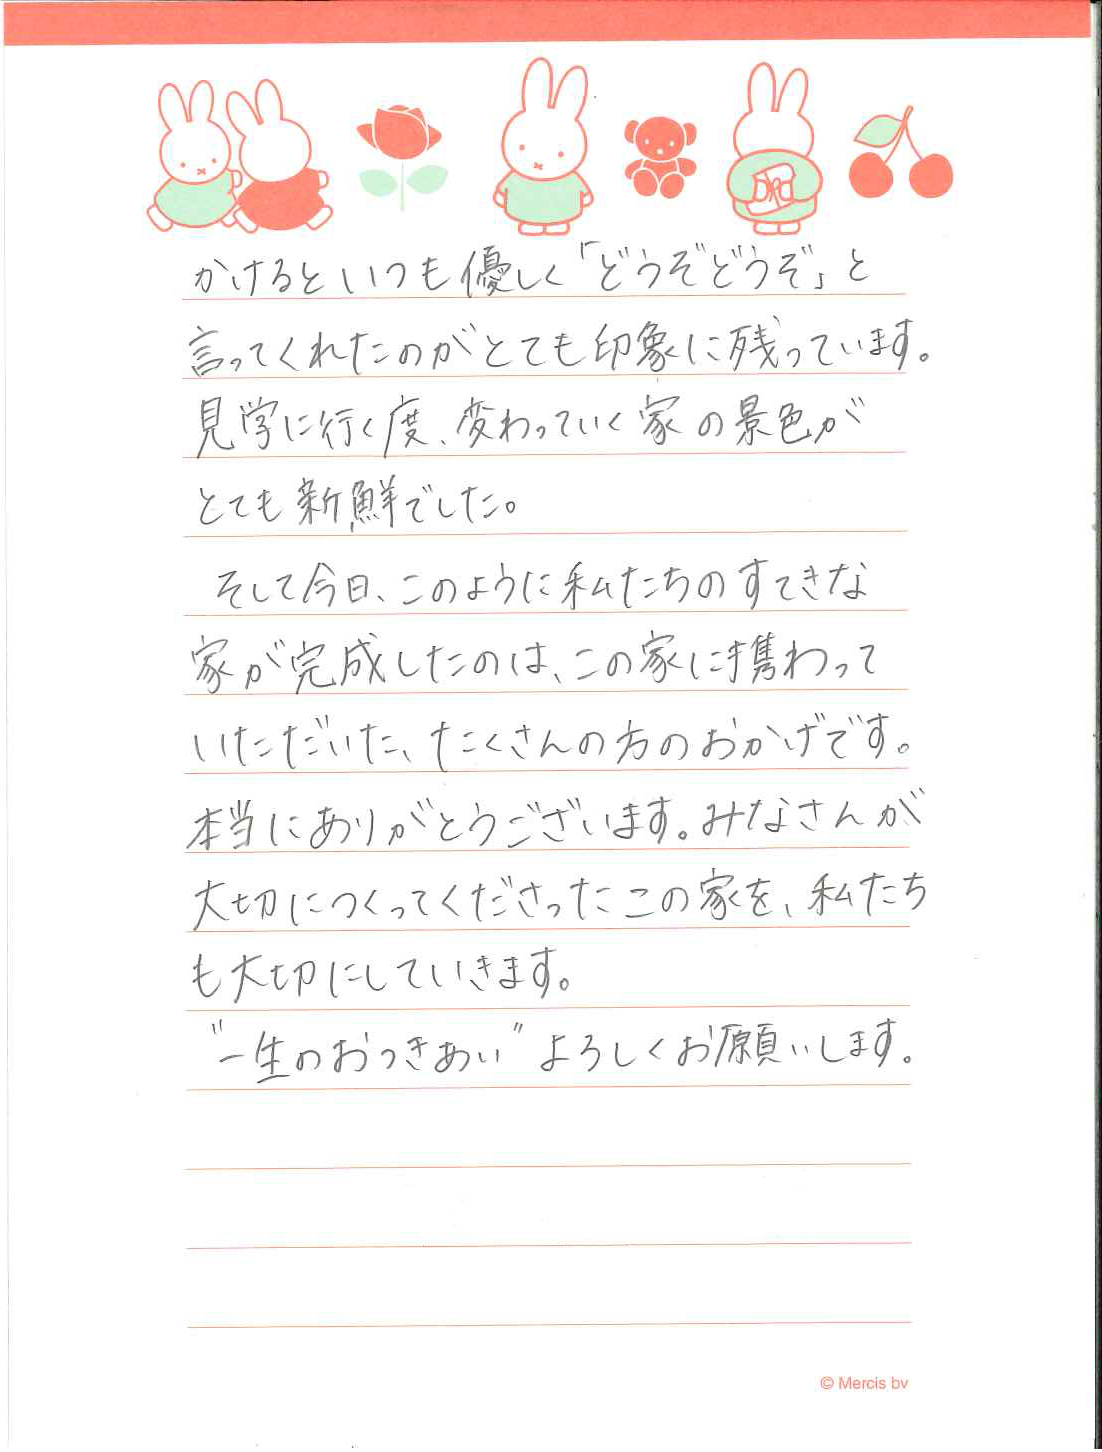 かけるといつも優しく「どうぞどうぞ」と
言ってくれたのがとても印象に残っています。
見学に行く度、変わっていく家の景色が
とても新鮮でした。
そして今日、このように私たちのすてきな
家が完成したのは、この家に携わって
いただいた、たくさんの方のおかげです。
本当にありがとうございます。みなさんが
大切につくってくださったこの家を、私たち
も大切にしていきます。
"一生のおつきあい"よろしくお願いします。
© Mercis bv